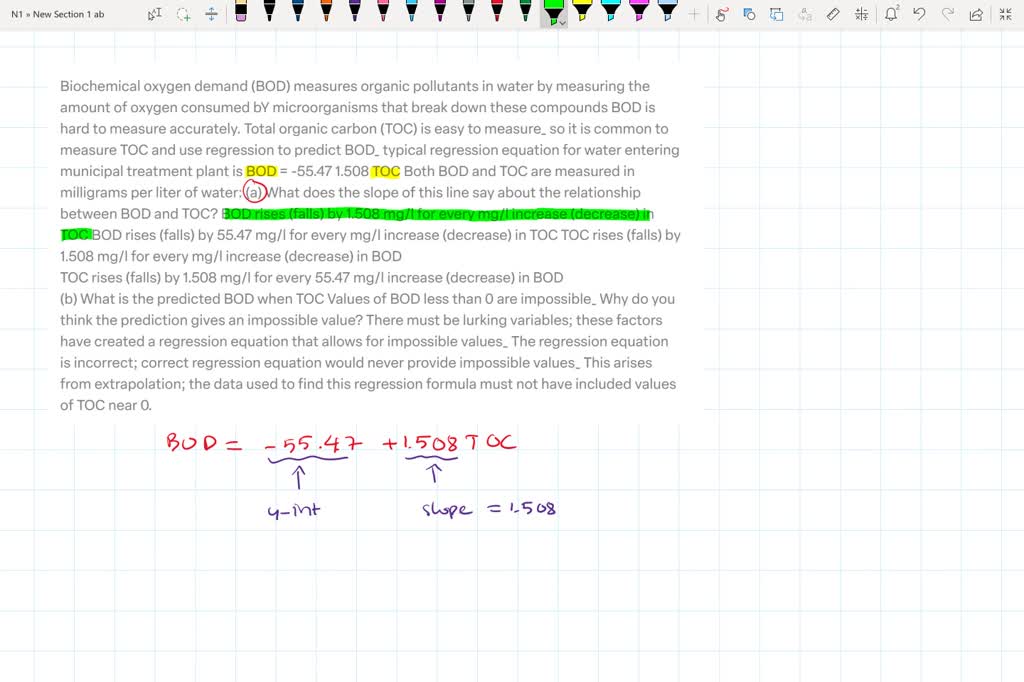 N1 » New Section 1 ab
Biochemical oxygen demand (BOD) measures organic pollutants in water by measuring the
amount of oxygen consumed bY microorganisms that break down these compounds BOD is
hard to measure accurately. Total organic carbon (TOC) is easy to measure_ so it is common to
measure TOC and use regression to predict BOD_ typical regression equation for water entering
municipal treatment plant is BOD = -55.47 1.508 TOC Both BOD and TOC are measured in
milligrams per liter of water: (a) What does the slope of this line say about the relationship
between BOD and TOC? BOD rises (falls) by 1.508 mg/l for every mg/l increase (decrease) in
TOC BOD rises (falls) by 55.47 mg/l for every mg/l increase (decrease) in TOC TOC rises (falls) by
1.508 mg/l for every mg/l increase (decrease) in BOD
TOC rises (falls) by 1.508 mg/l for every 55.47 mg/l increase (decrease) in BOD
(b) What is the predicted BOD when TOC Values of BOD less than 0 are impossible_ Why do you
think the prediction gives an impossible value? There must be lurking variables; these factors
have created a regression equation that allows for impossible values_ The regression equation
is incorrect; correct regression equation would never provide impossible values_ This arises
from extrapolation; the data used to find this regression formula must not have included values
of TOC near 0.
BOD = -55.47 +1.508 TOC
y-int slope = 1.508